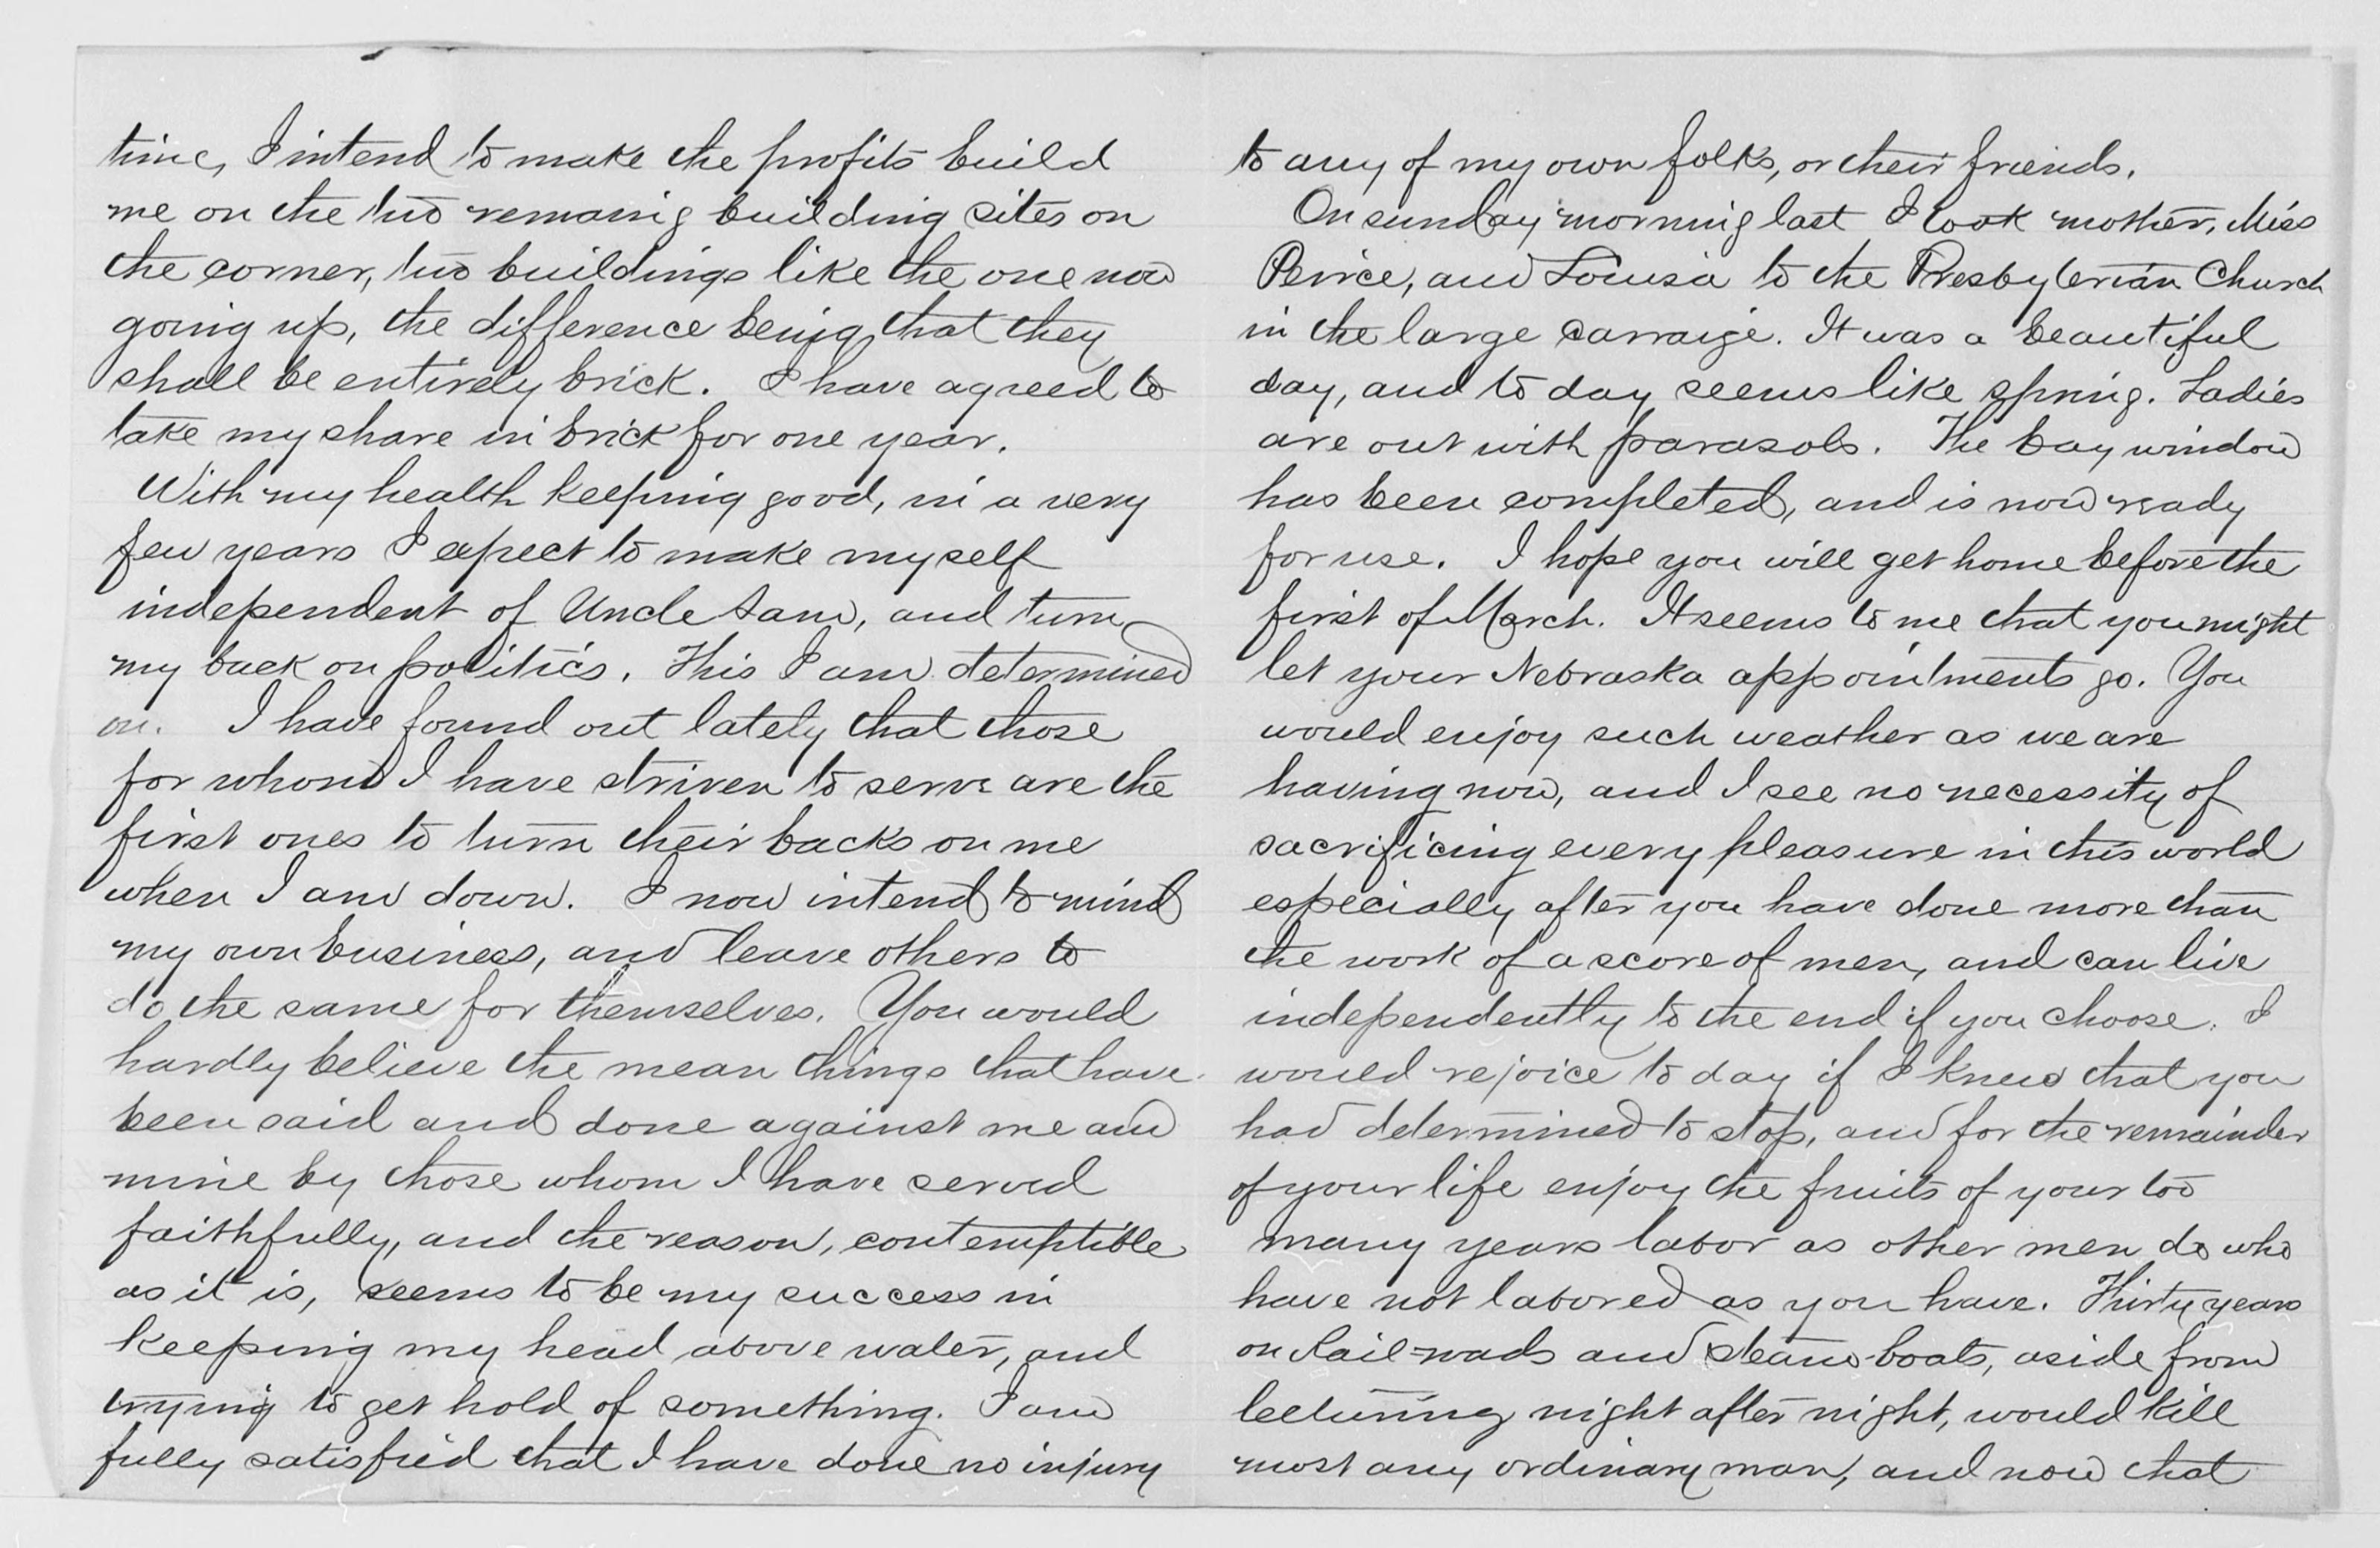 time, I intend to make the profits build
me on the two remaing building sites on
the corner, two buildings like the one now
going up, the difference being that they
shall be entirely brick. I have agreed to
take my share in brick for one year.
With my health keeping good, in a very
few years I expect to make myself
independent of Uncle Sam, and turn
my back on politics. This I am determined
on. I have found out lately that those
for whom I have striven to serve are the
first ones to turn their backs on me
when I am down. I now intend to mind
my own business, and leave others to
do the same for themselves. You would
hardly believe the mean things that have
been said and done against me and
mine by those whom I have served
faithfully, and the reason, contemptible
as it is, seems to be my success in
keeping my head above water, and
trying to get hold of something. I am
fully satisfied that I have done no injury
to any of my own folks, or their friends.
On sunday morning last I took mother, Miss
Peirce, and Louisa to the Presbyterian Church
in the large carraige. It was a beautiful
day, and to day seems like spring. Ladies
are out with parasols. The bay window
has been completed, and is now ready
for use. I hope you will get home before the
first of March. It seems to me that you might
let your Nebraska appointments go. You
would enjoy such weather as we are
having now, and I see no necessity of
sacrificing every pleasure in this world
especially after you have done more than
the work of a score of men, and can live
independently to the end if you choose. I
would rejoice to day if I knew that you
had determined to stop, and for the remainder
of your life enjoy the fruits of your too
many years labor as other men do who
have not labored as you have. Thirty years
on Rail-roads and steam-boats, aside from
lecturing night after night, would kill
most any ordinary man, and now that